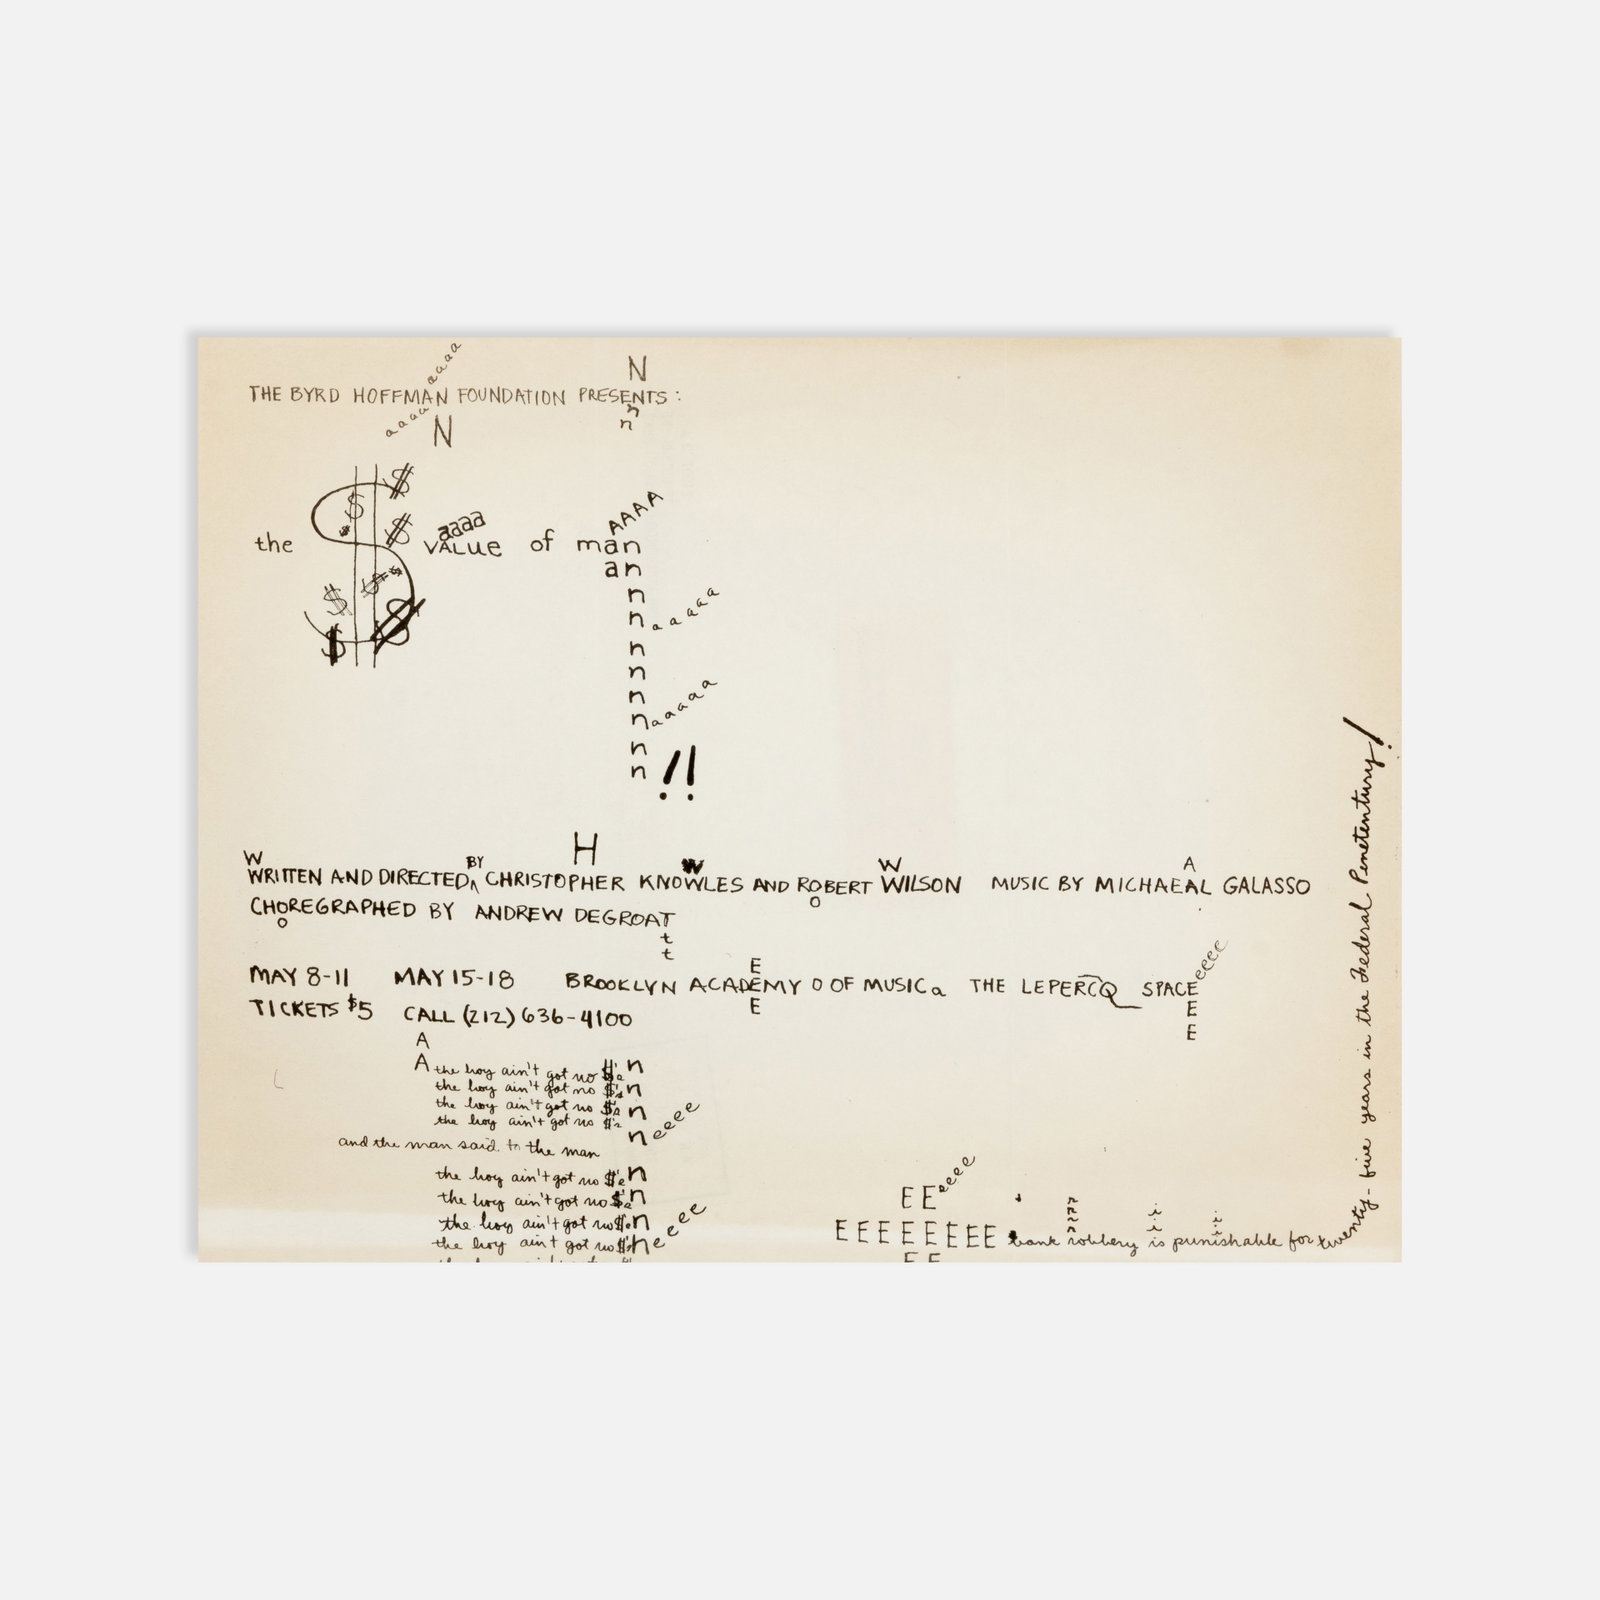 aaaaaaaa
N
THE BYRD HOFFMAN FOUNDATION PRESENTS :
n
n
N
$ $ $ $ $ $ $ $ $
aaaa
AAAA
the $ VALUE of man
an
n
naaaaa
n
n
n
naaaaa
n
n !!
H
W BY W W A
WRITTEN AND DIRECTED ^ CHRISTOPHER KNOWLES AND ROBERT WILSON MUSIC BY MICHAEAL GALASSO
O
CHOREGRAPHED BY ANDREW DEGROAT
O
t
t
E
MAY 8-11 MAY 15-18 BROOKLYN ACADEMY O OF MUSICa THE LEPERCQ SPACEeeee
E
E
E
TICKETS $5 CALL (212) 636-4100
A
A the boy ain't got no $'s n
the boy ain't got no $'s n
the boy ain't got no $'s n
the boy ain't got no $'s
neeee
and the man said. to the man
the boy ain't got no $'s n
the boy ain't got no $'s n
the boy ain't got no $'s n
the boy ain't got no $'s neeee
EEeeee
EEEEEEEE bank robbery is punishable for twenty-five years in the Federal Penetentury!
EE